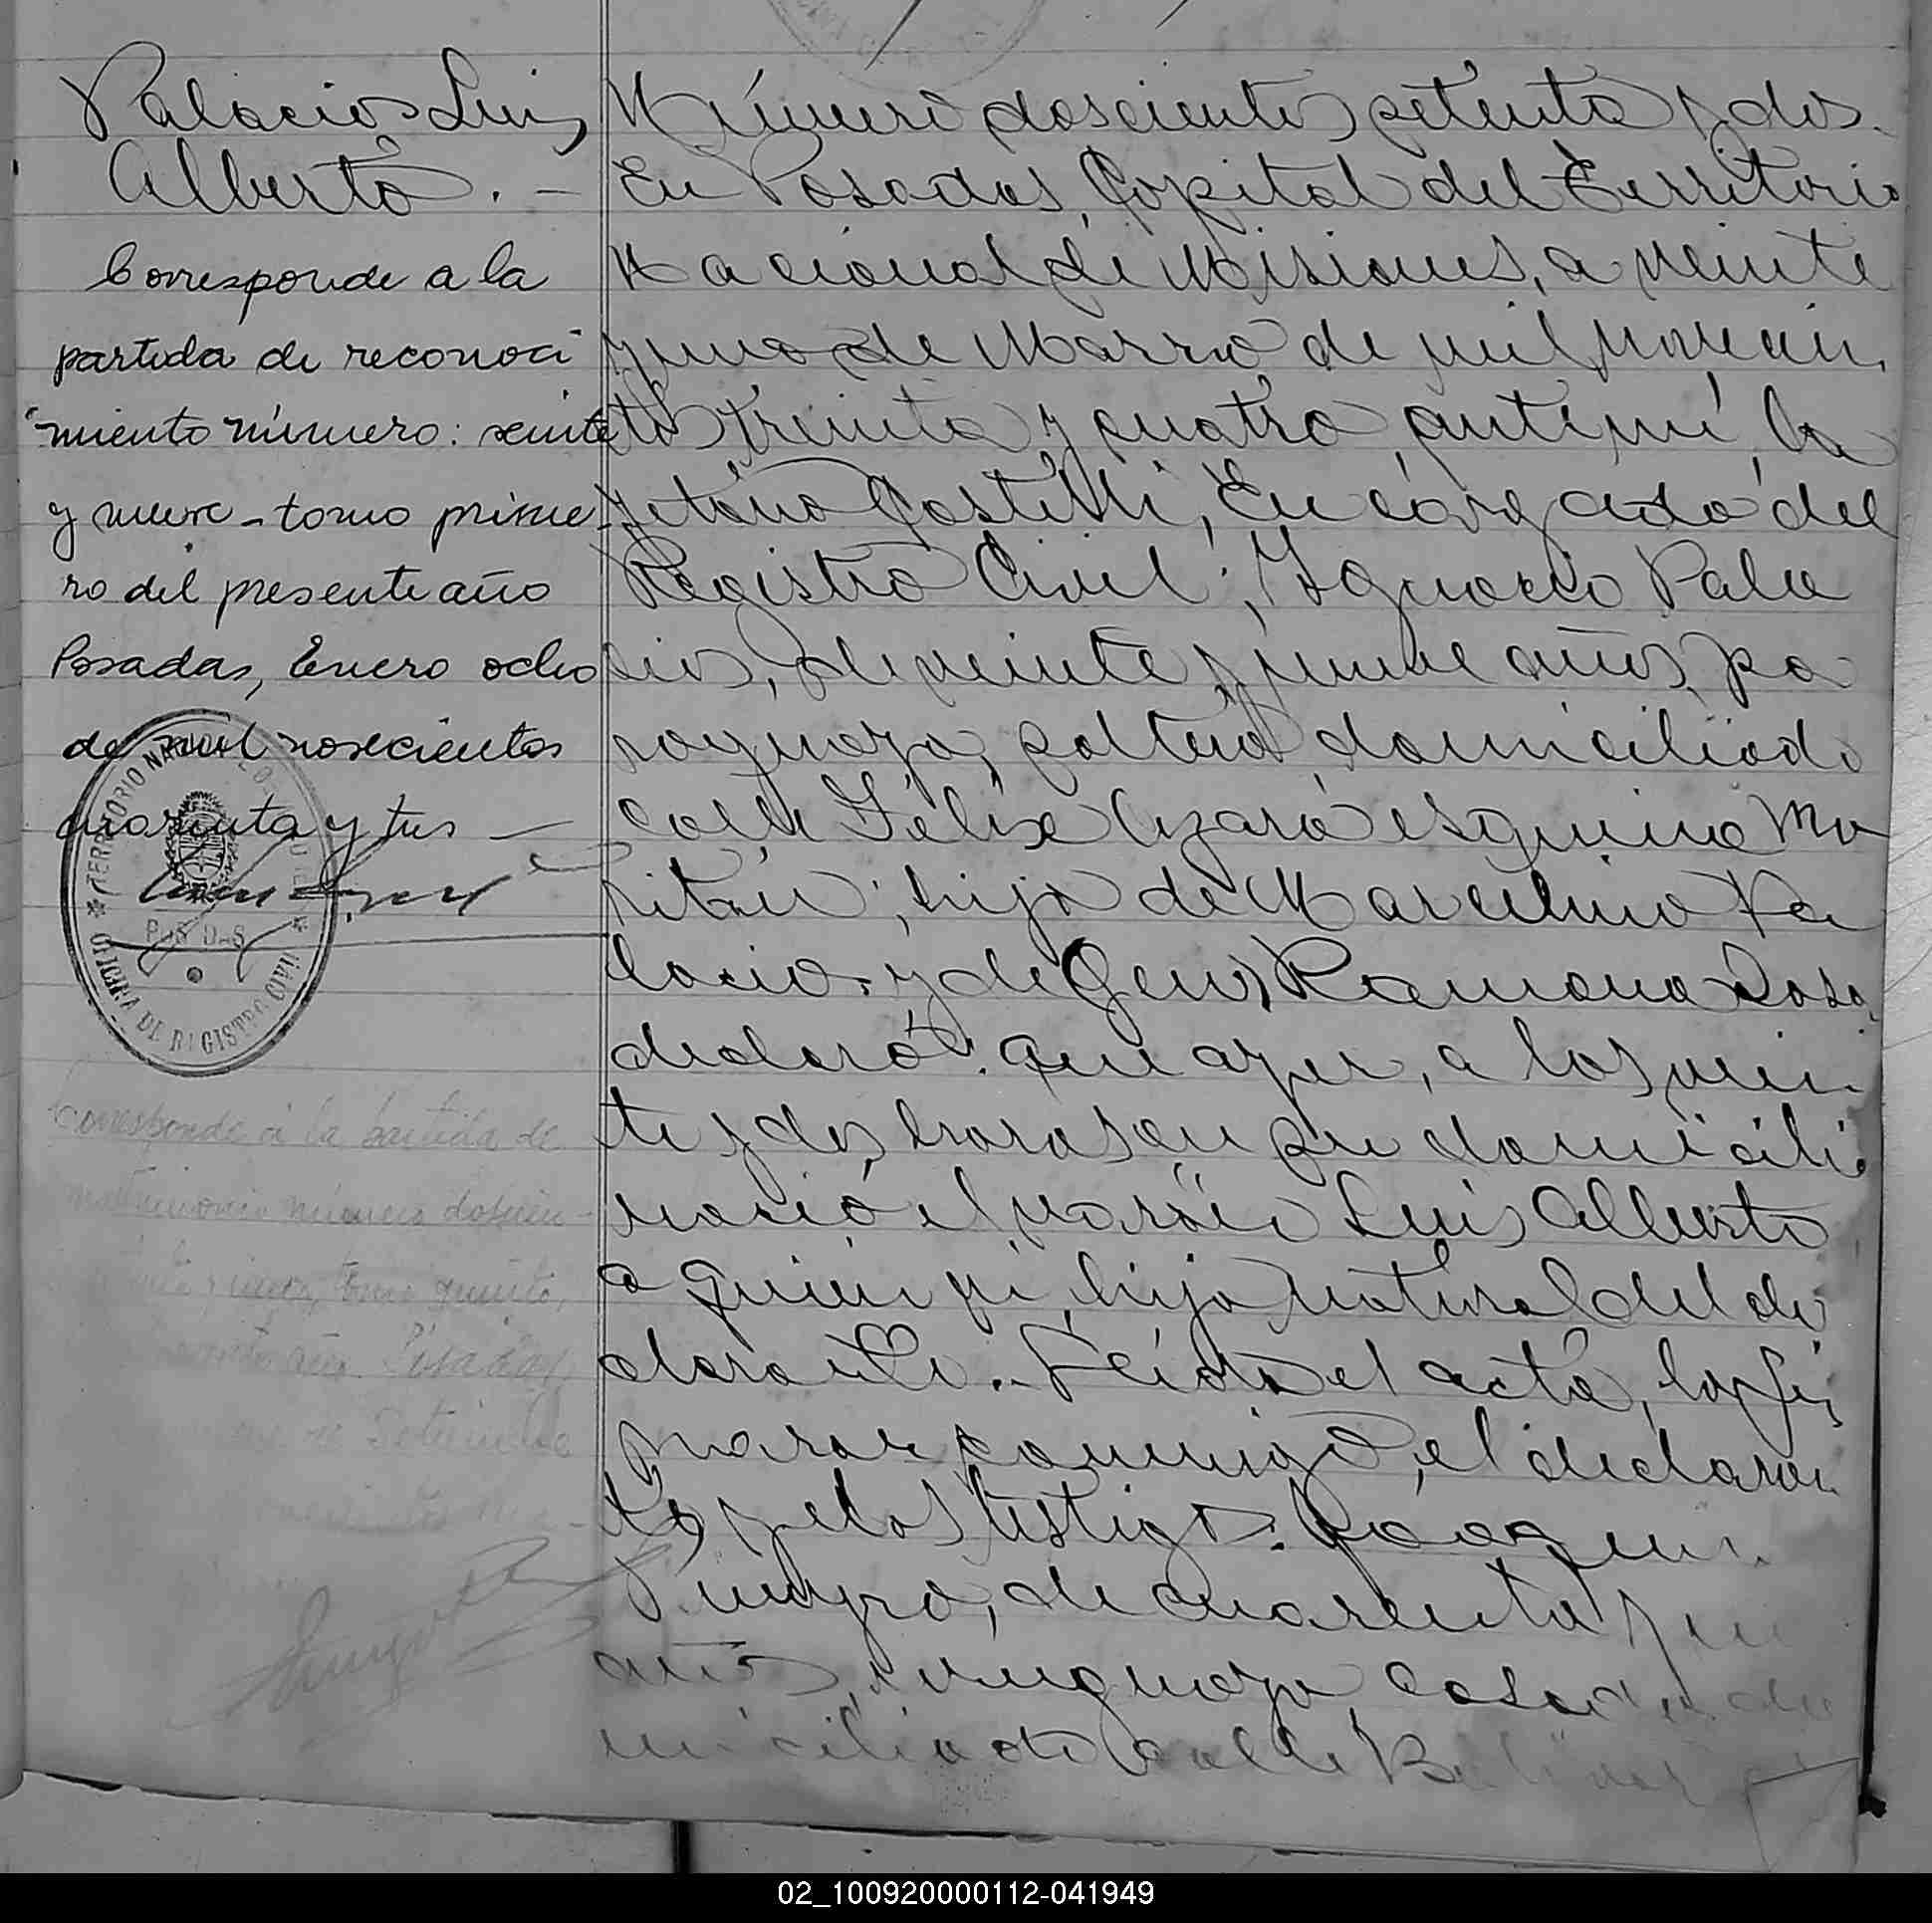 Palacios Luis
Alberto. -
Corresponde a la
partida de reconoci
miento número: veinte
y nueve - tomo prime-
ro del presente año
Posadas, Enero ocho
de mil novecientos
cuarenta y tres —
TERRITORIO NA
OFICINA DE REGISTRO CIVIL
Corresponde á la partida de
matrimonio número doscien-
y nueve, tomo quinto,
año. Posadas,
de Setiembre
Número doscientos setenta y dos.
En Posadas, Capital del Territorio
Nacional de Misiones, a veinte
y uno de Marzo de mil novecien
tos treinta y cuatro ante mi, Ca
yetano Castelli, Encargado del
Registro Civil; Ignacio Pala
cios, de veinte y nueve años, pa
raguayo, soltero domiciliado
calle Félix Azara esquina Tu
cumán; hijo de Marcelino Pa
lacios y de Ramona Sosa,
declaró: Que ayer, a las vein
te y dos horas en su domicilio
nació el varón Luis Alberto
a quien vi, hijo natural del de
clarante. - Leída el acta, la fir
maron conmigo, el declaran
te y los testigos: Joaquin
Pineyro, de cuarenta y
años, uruguayo casado, do
miciliado calle Bolivar
02_100920000112-041949